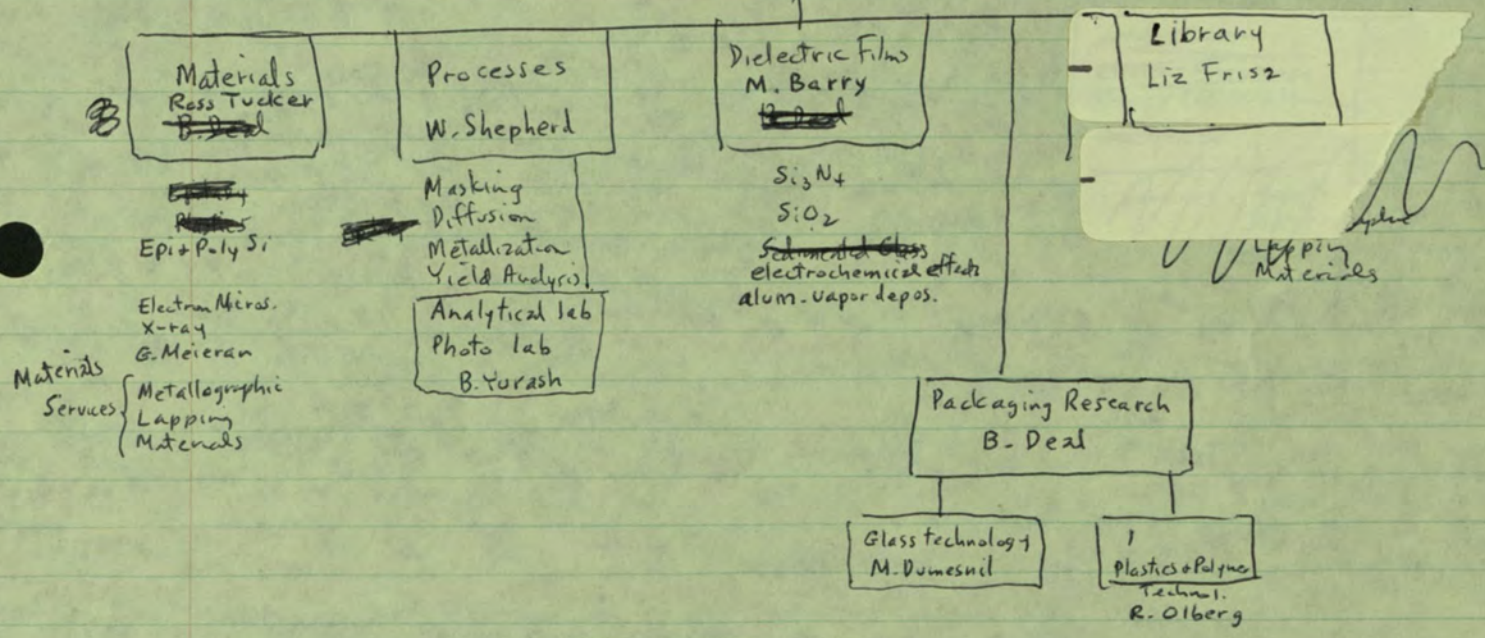 Materials
Ross Tucker
B. Deal
Epi + Poly Si
Electron Micros.
X-ray
G. Meieran
Materials
Services
Metallographic
Lapping
Materials
Processes
W. Shepherd
Masking
Diffusion
Metallization
Yield Analysis
Analytical lab
Photo lab
B. Yurash
Dielectric Films
M. Barry
B. Deal
Si3N4
SiO2
Sedimented Glass
electrochemical effects
alum. vapor depos.
Library
Liz Frisz
Lapping
Materials
Packaging Research
B. Deal
Glass technology
M. Dumesnil
Plastics + Polymer
Technol.
R. Olberg